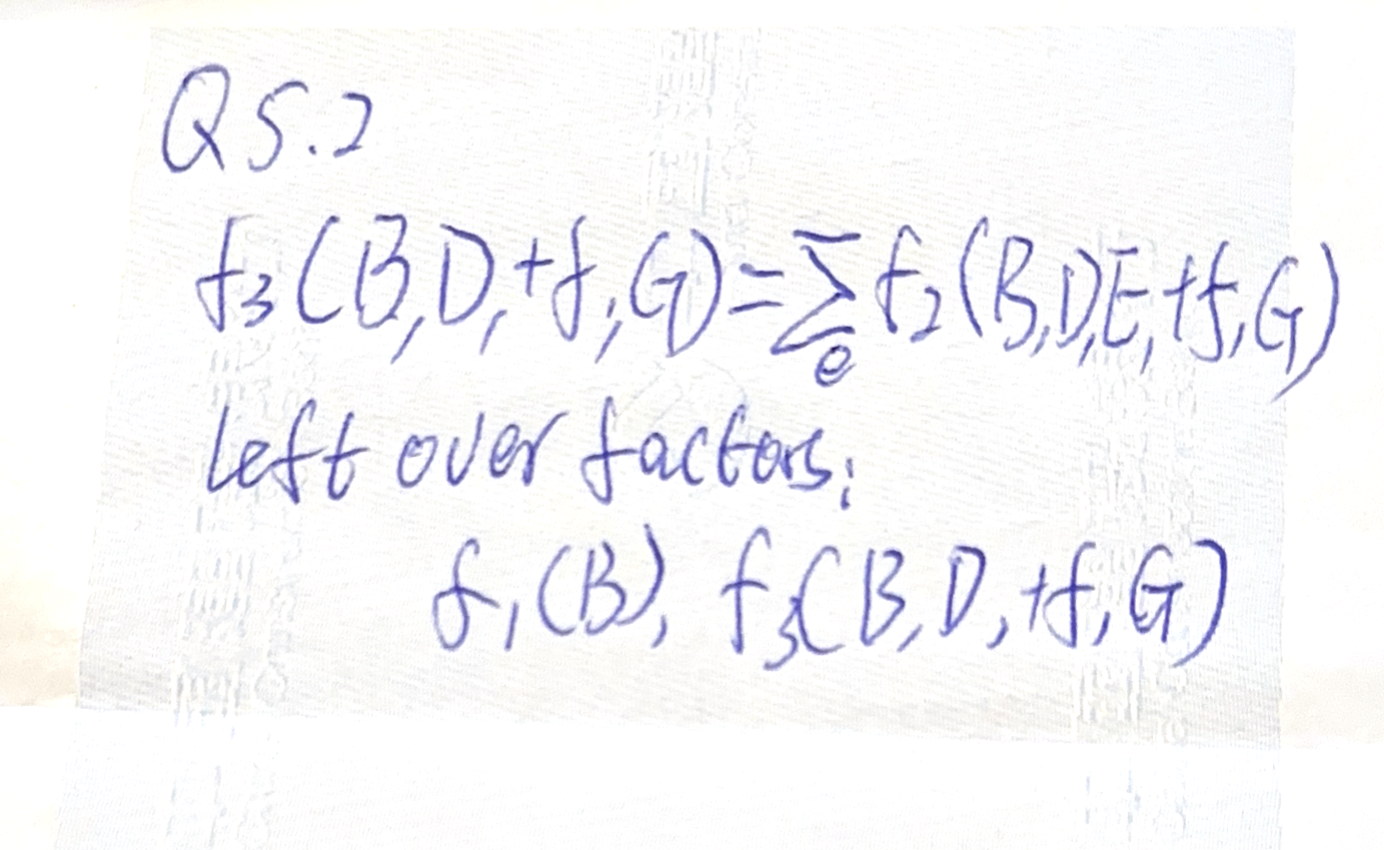 Q5.2
f₃(B,D,+f,G)=∑ₑ f₂(B,D,E,+f,G)
left over factors:
f₁(B), f₃(B,D,+f,G)